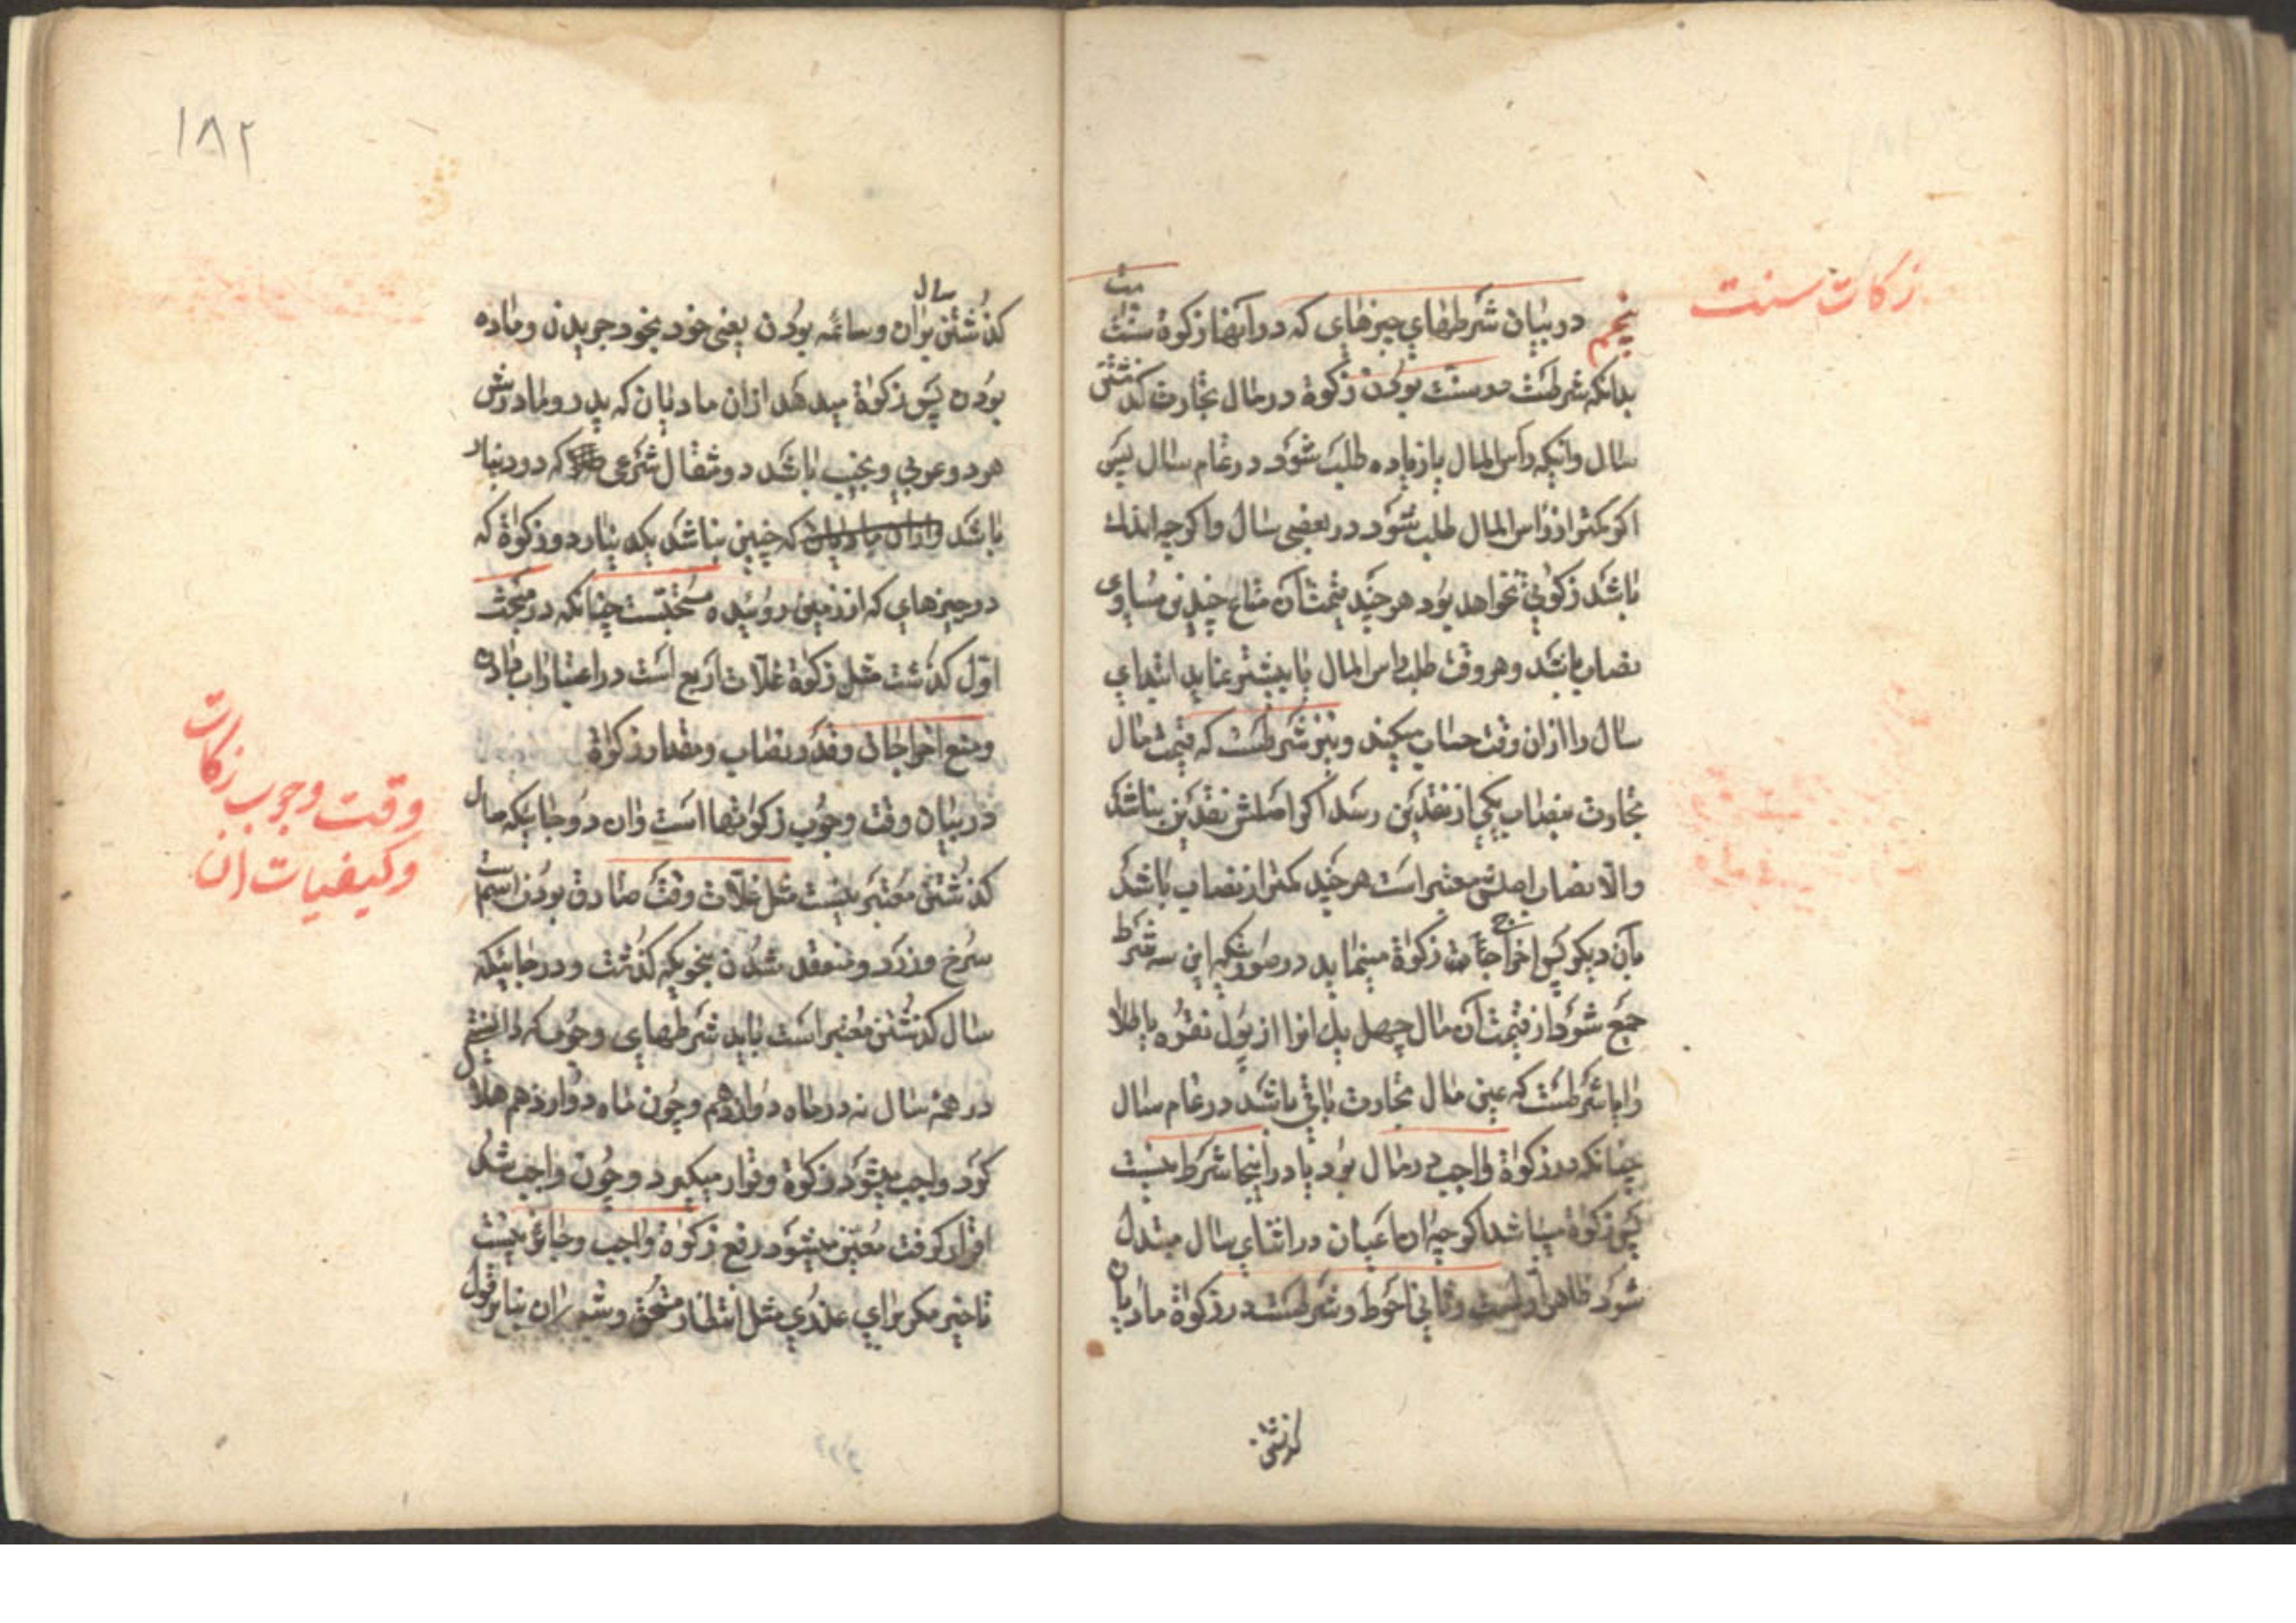 زکات سنت
پنجم در بیان شرطهای چیزهای که در آنها زکوة سنت است
بدانکه شرطست در سنت بودن زکوة در مال تجارت کذشتن
سال وآنیکه رأس المال یا زیاده طلب شود در تمام سال پس
اکر کمتر از رأس المال طلب شود در بعضی سال واکرچه اندک
باشد زکوتی نخواهد بود هر چند قیمت آن متاع چندین مساوی
نصاب باشد وهر وقت طلب رأس المال یا بیشتر نماید ابتدای
سال را ازان وقت حساب میکند ونیز شرطست که قیمت مال
تجارت بنصاب یکی از نقدین رسد اکر اصلش نقدین نباشد
والا نصاب اصلش معتبر است هر چند کمتر از نصاب باشد
بآن دیکر پس اخراجات زکوة مینماید در صورتیکه این سه شرط
جمع شود از قیمت آن مال چهل یک انرا از پول نقره یا طلا
وایا شرطست که عین مال تجارت باقی باشد در تمام سال
چنانکه در زکوة واجب در مال بود یا در اینجا شرط نیست
پس زکوة میباشد اکرچه ان اعیان در اثنای سال مبتدل
شود ظاهر اولست وثانی احوط وشرطست در زکوة مادیان
کذشتن
١٨٢
کذشتن سال بران وسائمه بودن یعنی خود بخود چریدن وماده
بودن پس زکوة میدهد ازان مادیان که پدر ومادرش
هر دو عربی ونجیب باشد دو مثقال شرعی که دو دینار
باشد وازان مادیان که چنین نباشد یکدینار ودر زکوة که
در چیزهای که از زمین روئیده مستحبست چنانکه در مبحث
اول کذشت مثل زکوة غلات اربع است در اعتبار اب دادن
ووضع اخراجات وقدر نصاب ومقدار زکوة
در بیان وقت وجوب زکوتها است وان در جاییکه سال
کذشتن معتبر نیست مثل غلات وقت صادق بودن اسمست
سرخ وزرد ومنعقد شدن بنحویکه کذشت ودر جائیکه
سال کذشتن معتبر است باید شرطهای وجوب که دانستی
در همه سال نه در ماه دوازدهم وچون ماه دوازدهم هلال
کرد واجب میشود زکوة وقرار میکیرد وچون واجب شد
وقرار کرفت معین میشود دفع زکوة واجب وجائز نیست
تاخیر مکر برای عذری مثل انتظار مستحق وشبه ان بنابر قول
وقت وجوب زکات
وکیفیات ان